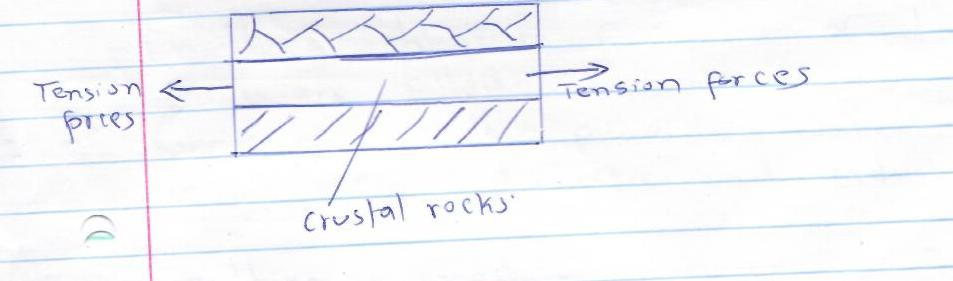 Tension forces
Tension
forces
crustal rocks